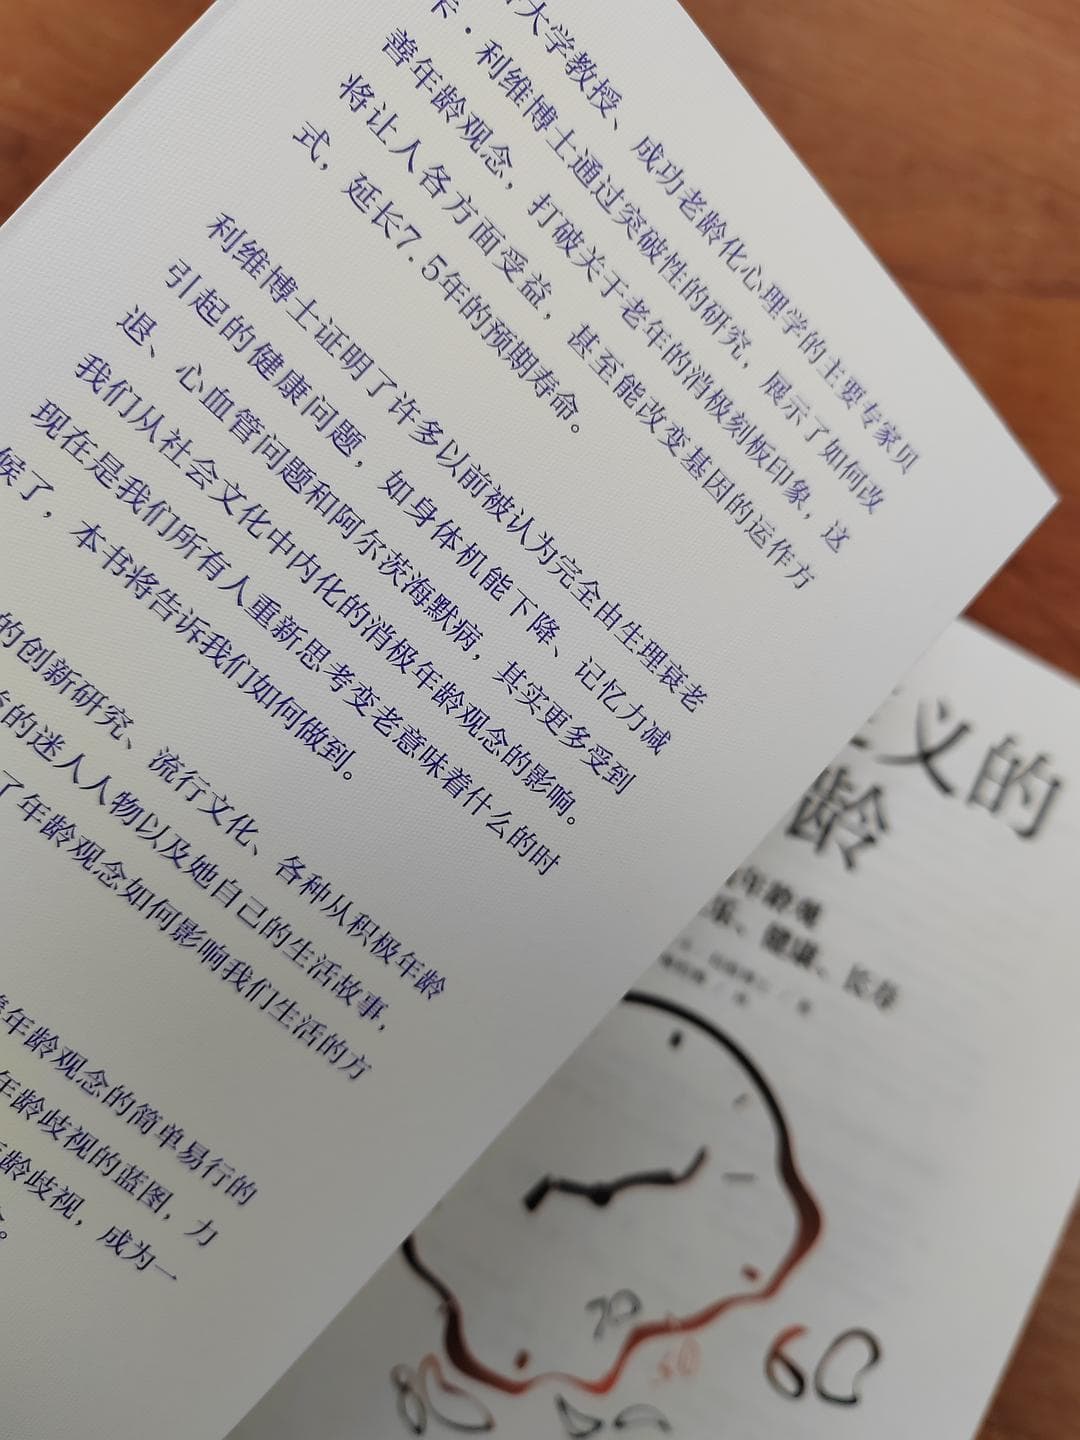 大学教授、成功老龄化心理学的主要专家贝
卡·利维博士通过突破性的研究，展示了如何改
善年龄观念，打破关于老年的消极刻板印象，这
将让人各方面受益，甚至能改变基因的运作方
式，延长7.5年的预期寿命。
利维博士证明了许多以前被认为完全由生理衰老
引起的健康问题，如身体机能下降、记忆力减
退、心血管问题和阿尔茨海默病，其实更多受到
我们从社会文化中内化的消极年龄观念的影响。
现在是我们所有人重新思考变老意味着什么的时
候了，本书将告诉我们如何做到。
的创新研究、流行文化、各种从积极年龄
的迷人人物以及她自己的生活故事，
了年龄观念如何影响我们生活的方
年龄观念的简单易行的
年龄歧视的蓝图，力
龄歧视，成为一
义的
龄
年龄观
乐、健康、长寿
70
60
80